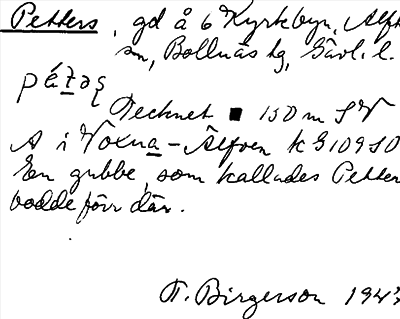 Petters, gd å 6 Kyrkbyn, Alft
sn, Bollnäs tg, Gävl. l.
Tecknet ■ 150 m SV
A i Voxna-Älfven k G 109 SO
En gubbe, som kallades Petter
bodde förr där.
T. Birgerson 1943